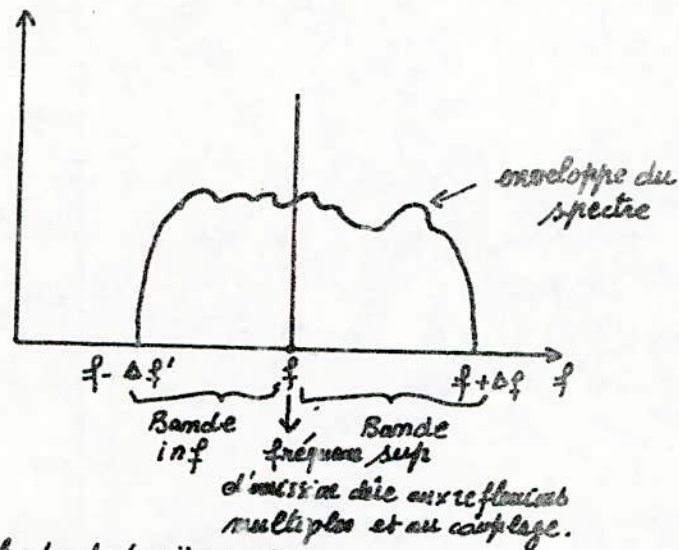 enveloppe du
spectre
f - Δf' f f + Δf f
Bande Bande
inf sup
d'émission dûe aux reflexions
multiples et au couplage.